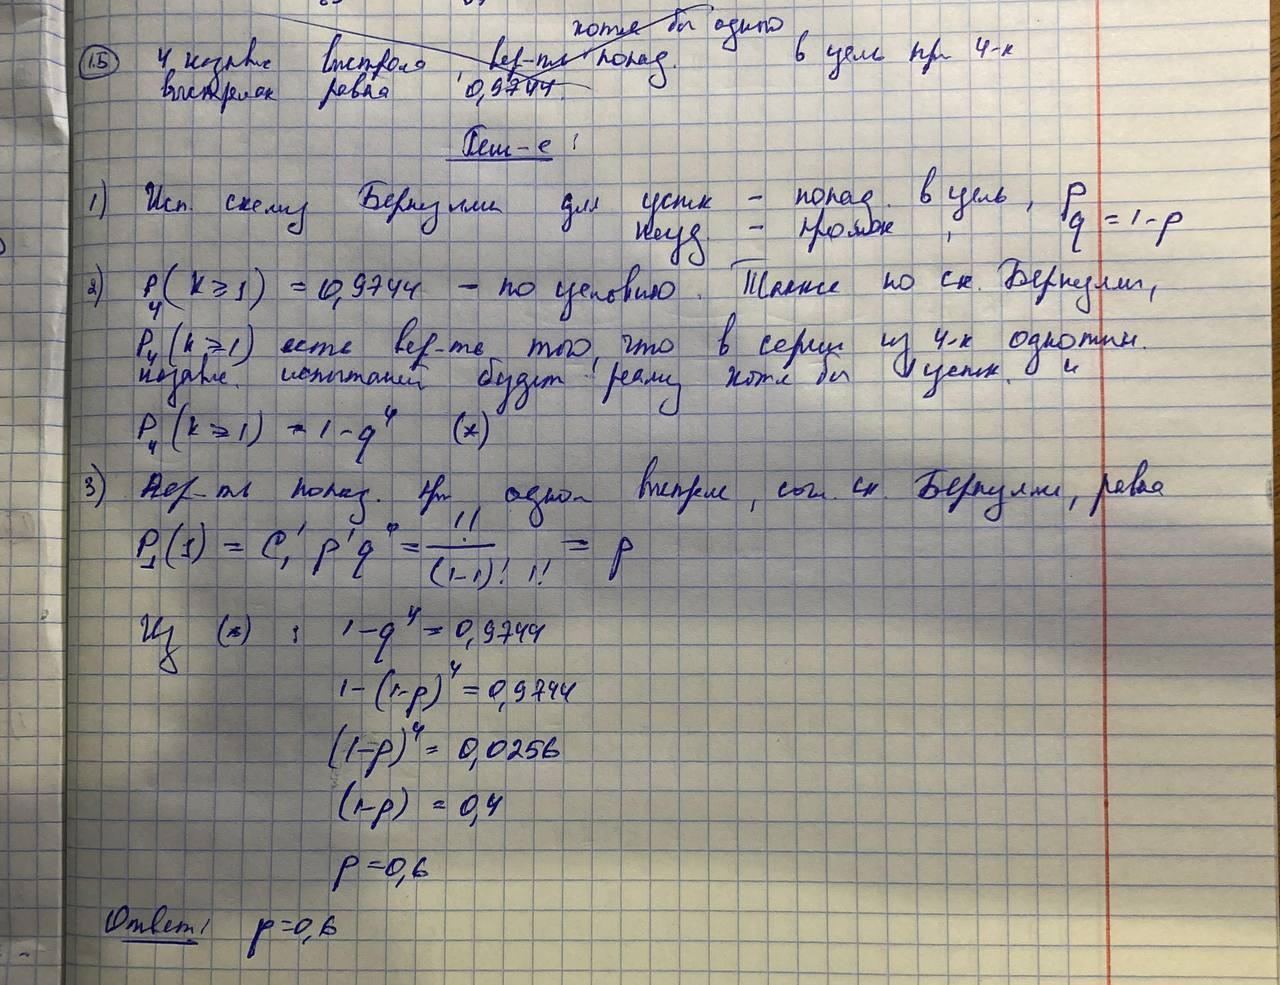 хотя бы одного
15 4 независ выстрела, вер-ть попад. в цель при 4-х
выстрелах равна 0,9744.
Реш-е:
1) Исп. схему Бернулли для успех – попад. в цель, p
неуд – промах, q = 1-p
2) P₄(k≥1) = 0,9744 – по условию. Также по сх. Бернулли,
P₄(k≥1) есть вер-ть того, что в серии из 4-х однотип.
независ. испытаний будет реализ хотя бы 1 успех. и
P₄(k≥1) = 1-q⁴ (*)
3) Вер-ть попад. при одном выстреле, сог. сх. Бернулли, равна
P₁(1) = C₁¹ p¹q⁰ = 1!/(1-1)! 1! = p
Из (*): 1-q⁴ = 0,9744
1-(1-p)⁴ = 0,9744
(1-p)⁴ = 0,0256
(1-p) = 0,4
p=0,6
Ответ: p=0,6